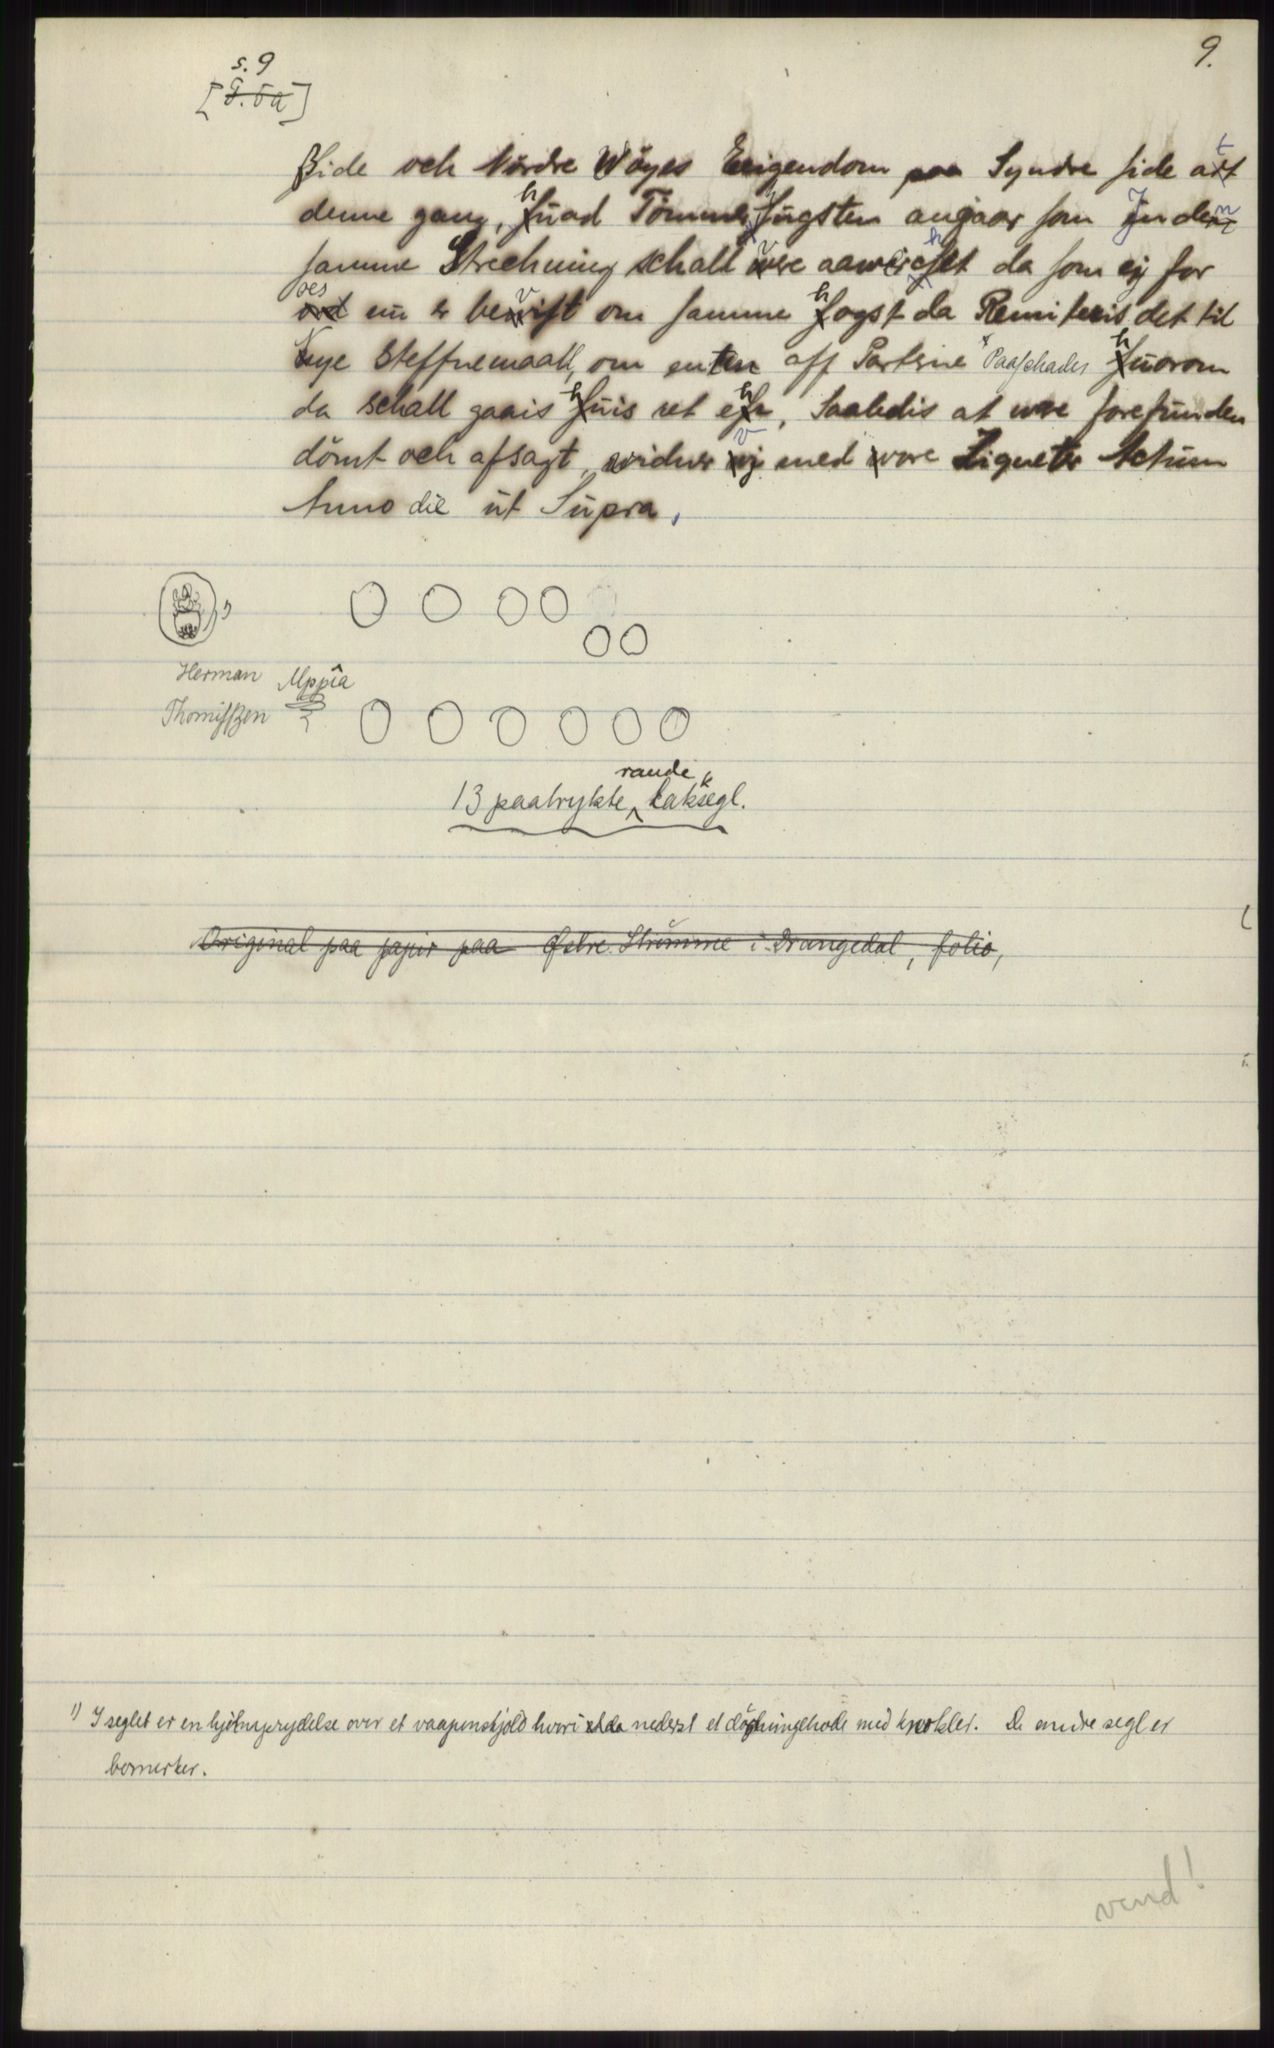 9.
s. 9
[F. 5a]
ẞide och Nørdre Wøyes Eigendom paa Syndre side at
denne gang, huad Tømmer hugsten angaar som Jnden
samme Strechning schall vere aaworchet da som ej for
nu er bevist om samme hogst da Remiteris det til
Nye Steffnemaall, om enten aff Parterne Paaschader huorom
da schall gaais huis ret ehr, Saaledis at were forefunden
dømt och afsagt, widner vj med vore Zigneter Actum
Anno die ut Supra,
1)
Herman Mppia
Thomisßen
13 paatrykte raude laksegl.
Original paa papir paa Østre Strømme i Drangedal, folio,
1) I seglet er en hjelmprydelse over et vaapenskjold hvori nederst et dødninghode med knokler. De andre segl er
bomerker.
vend!